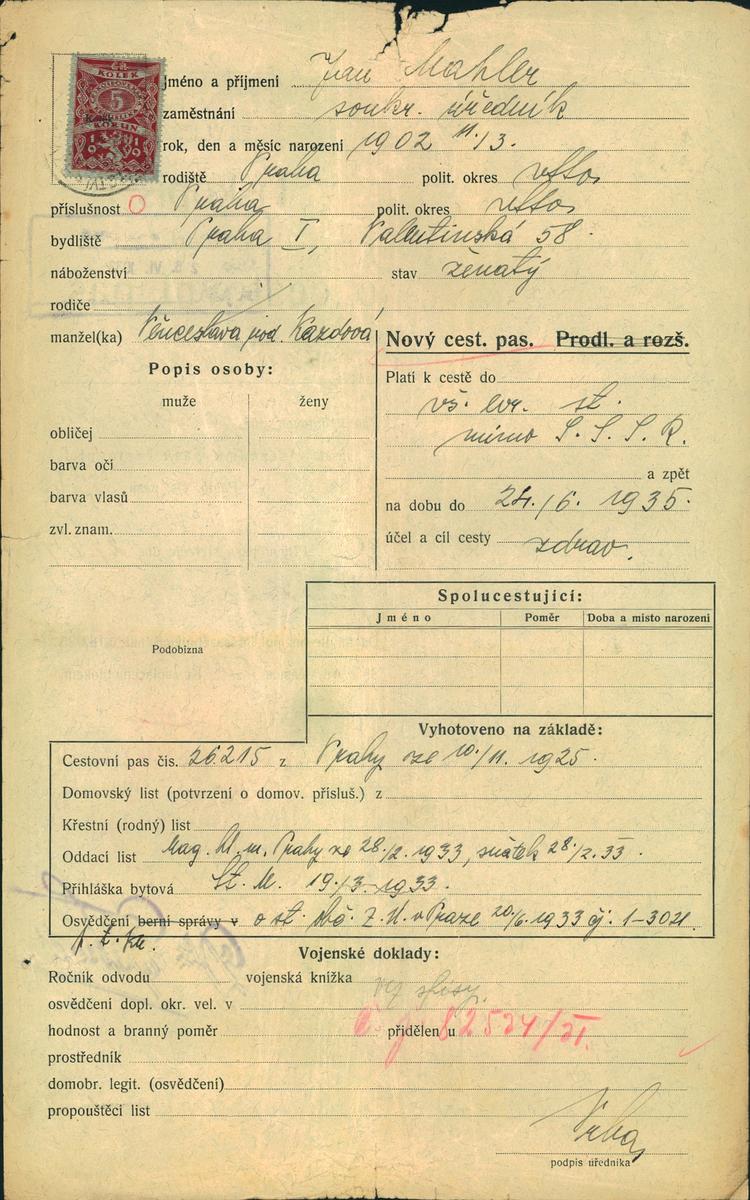 KOLEK
5
KORUN
1919
jméno a příjmení Jan Mahler
zaměstnání soukr. úředník
rok, den a měsíc narození 1902 11./3.
rodiště Praha polit. okres
příslušnost Praha polit. okres
bydliště Praha I, Valentinská 58.
náboženství stav ženatý
rodiče
manžel(ka) Věnceslava roz.
Nový cest. pas. Prodl. a rozš.
Popis osoby:
muže ženy
obličej
barva očí
barva vlasů
zvl. znam.
Platí k cestě do
vš. evr. st.
mimo S. S. S. R.
a zpět
na dobu do 24./6. 1935.
účel a cíl cesty zdrav.
Spolucestující:
Jméno Poměr Doba a místo narození
Podobizna
Vyhotoveno na základě:
Cestovní pas čís. 26215 z Prahy ze 10/11. 1925.
Domovský list (potvrzení o domov. přísluš.) z
Křestní (rodný) list
Oddací list Mag. hl. m. Prahy ze 28./2. 1933, sňatek 28./2. 33.
Přihláška bytová St. M. 19./3. 1933.
Osvědčení berní správy v o st. obč. Z. Ú. v Praze 20./6. 1933 čj. 1-3021.
Vojenské doklady:
Ročník odvodu vojenská knížka viz spisy
osvědčení dopl. okr. vel. v
hodnost a branný poměr přidělen u
č. j. 82574/31.
prostředník
domobr. legit. (osvědčení)
propouštěcí list
podpis úředníka